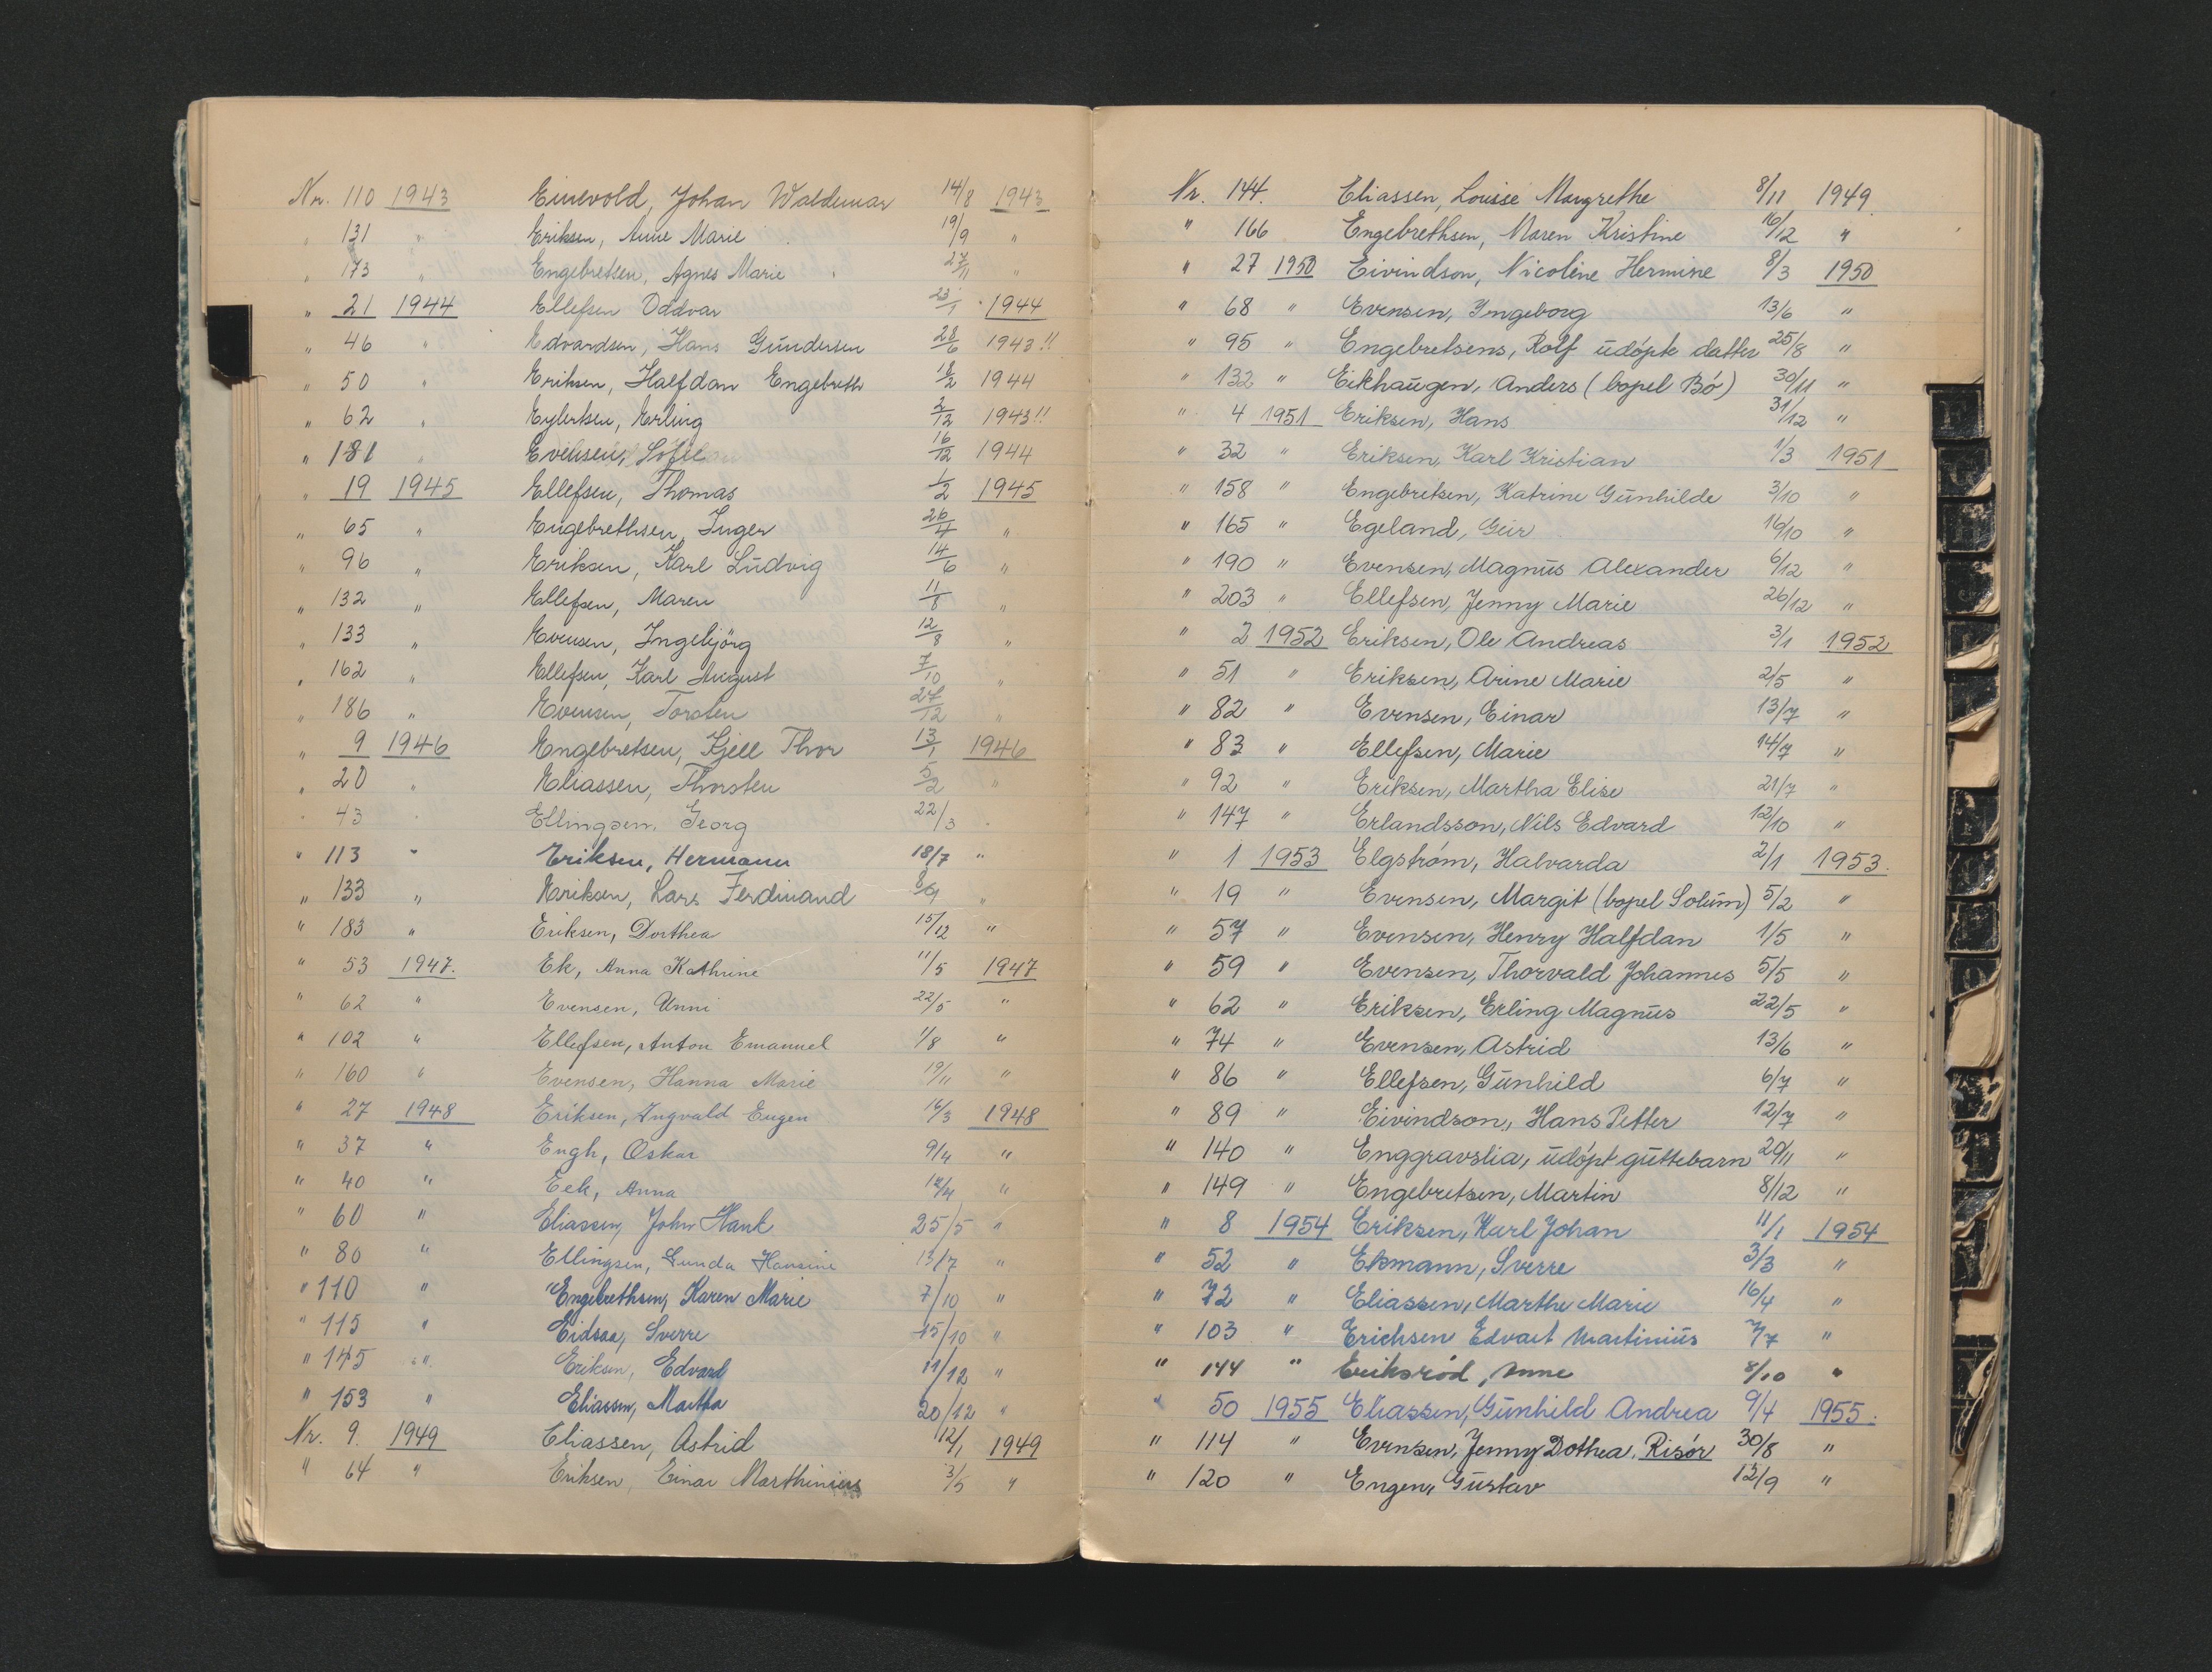 Nr. 110 1943 Einevold, Johan Waldemar 14/8 1943
" 131 " Eriksen, Anne Marie 19/9 "
" 173 " Engebretsen, Agnes Marie 27/11 "
" 21 1944 Ellefsen Oddvar 23/1 1944
" 46 " Edvardsen, Hans Gundersen 28/6 1943!!
" 50 " Eriksen, Halfdan Engebreth 18/2 1944
" 62 " Eylertsen, Erling 2/12 1943!!
" 181 " Evensen, Sofie 16/12 1944
" 19 1945 Ellefsen, Thomas 1/2 1945
" 65 " Engebrethsen, Inger 26/4 "
" 96 " Eriksen, Karl Ludvig 14/6 "
" 132 " Ellefsen, Maren 11/8 "
" 133 " Evensen, Ingebjörg 12/8 "
" 162 " Ellefsen, Karl August 7/10 "
" 186 " Evensen, Torsten 27/12 "
" 9 1946 Engebretsen, Kjell Thor 13/1 1946
" 20 " Eliassen, Thorsten 5/2 "
" 43 " Ellingsen, Georg 22/3 "
" 113 " Eriksen, Hermann 18/7 "
" 133 " Eriksen, Lars Ferdinand 8/9 "
" 183 " Eriksen, Dorthea 15/12 "
" 53 1947. Ek, Anna Kathrine 11/5 1947
" 62 " Evensen, Unni 22/5 "
" 102 " Ellefsen, Anton Emanuel 1/8 "
" 160 " Evensen, Hanna Marie 19/11 "
" 27 1948 Eriksen, Ingvald Eugen 16/3 1948
" 37 " Engh, Oskar 9/4 "
" 40 " Eek, Anna "
" 60 " Eliassen, John Hauk 25/5 "
" 80 " Ellingsen, Gunda Hansine 13/7 "
" 110 " Engebrethsen, Karen Marie 7/10 "
" 115 " Eidsaa, Sverre 15/10 "
" 145 " Eriksen, Edvard 11/12 "
" 153 " Eliassen, Martha 20/12 "
Nr. 9. 1949 Eliassen, Astrid 12/1 1949
" 64 " Eriksen, Einar Marthinius 3/5 "
Nr. 144. Eliassen, Louise Margrethe 8/11 1949.
" 166 Engebrethsen, Maren Kristine 16/12 "
" 27 1950 Eivindson, Nicoline Hermine 8/3 1950
" 68 " Evensen, Ingeborg 13/6 "
" 95 " Engebretsens, Rolf udöpte datter 25/8 "
" 132 " Eikhaugen, Anders (bopel Bö) 30/11 "
" 4 1951 Eriksen, Hans 31/12 "
" 32 " Eriksen, Karl Kristian 1/3 1951
" 158 " Engebretsen, Katrine Gunhilde 3/10 "
" 165 " Egeland, Geir 16/10 "
" 190 " Evensen, Magnus Alexander 6/12 "
" 203 " Ellefsen, Jenny Marie 26/12 "
" 2 1952 Eriksen, Ole Andreas 3/1 1952
" 51 " Eriksen, Arine Marie 2/5 "
" 82 " Evensen, Einar 13/7 "
" 83 " Ellefsen, Marie 14/7 "
" 92 " Eriksen, Martha Elise 21/7 "
" 147 " Erlandsson, Nils Edvard 12/10 "
" 1 1953 Elgström, Halvarda 2/1 1953.
" 19 " Evensen, Margit (bopel Solum) 5/2 "
" 57 " Evensen, Henry Halfdan 1/5 "
" 59 " Evensen, Thorvald Johannes 5/5 "
" 62 " Eriksen, Erling Magnus 22/5 "
" 74 " Evensen, Astrid 13/6 "
" 86 " Ellefsen, Gunhild 6/7 "
" 89 " Eivindson, Hans Petter 12/7 "
" 140 " Enggravslia, udöpt guttebarn 20/11 "
" 149 " Engebretsen, Martin 8/12 "
" 8 1954 Eriksen, Karl Johan 11/1 1954
" 52 " Ekmann, Sverre 3/3 "
" 72 " Eliassen, Marthe Marie 16/4 "
" 103 " Erichsen Edvart Martinius 7/7 "
" 144 " Eriksröd, Anne 8/10 "
" 50 1955 Eliassen, Gunhild Andrea 9/4 1955.
" 114 " Evensen, Jenny Dothea. Risör 30/8 "
" 120 " Engen, Gustav 12/9 "